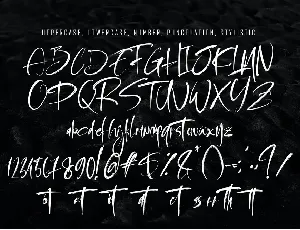 UPPERCASE, LOWERCASE, NUMBER, PUNCTUATION, STYLISTIC
ABCDEFGHIJKLMN
OPQRSTUVWXYZ
abcdefghijklmnopqrstuvwxyz
1234567890!@#%&*()-+:;,.?/